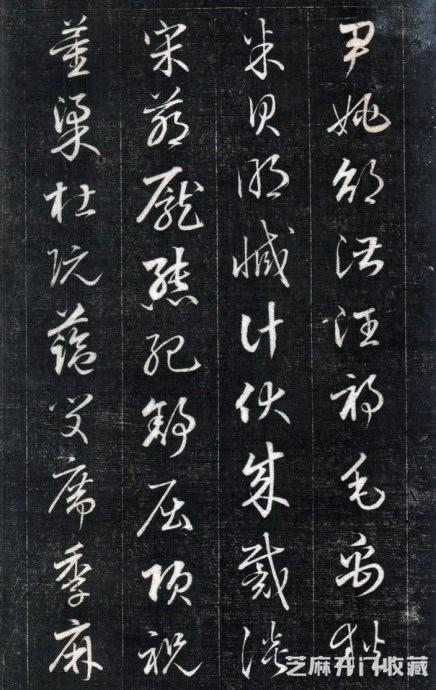 尹姚邵湛汪祁毛禹狄
米貝明臧計伏成戴談
宋茅龐熊紀舒屈項祝
董梁杜阮藍閔席季麻
芝麻开门收藏